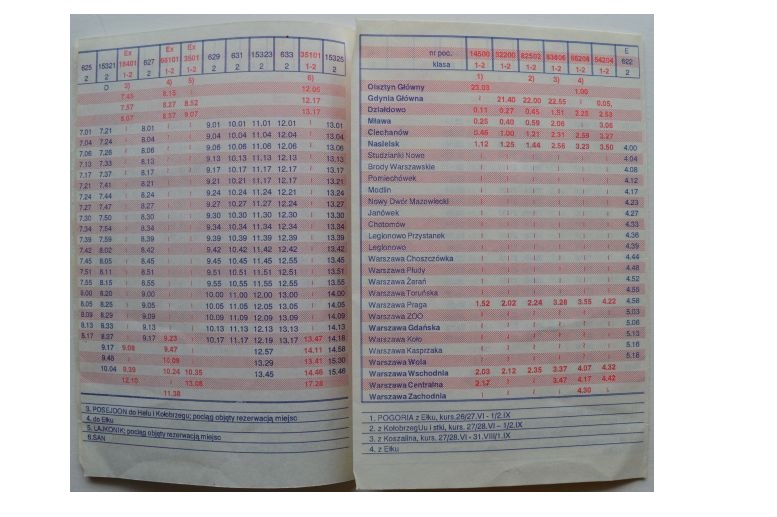 625 15321 Ex 18401 627 Ex 68101 Ex 3501 629 631 15323 633 35101 15325
2 2 1-2 2 1-2 1-2 2 2 2 2 1-2 2
D 3) 4) 5) 6)
7.45 8.15 12.05
7.57 8.27 8.52 12.17
8.07 8.37 9.07 13.17
7.01 7.21 8.01 9.01 10.01 11.01 12.01 13.01
7.04 7.24 8.04 9.04 10.04 11.04 12.04 13.04
7.06 7.26 8.06 9.06 10.06 11.06 12.06 13.06
7.13 7.33 8.13 9.13 10.13 11.13 12.13 13.13
7.17 7.37 8.17 9.17 10.17 11.17 12.17 13.17
7.21 7.41 8.21 9.21 10.21 11.17 12.21 13.21
7.24 7.44 8.24 9.24 10.24 11.24 12.24 13.24
7.27 7.47 8.27 9.27 10.27 11.27 12.27 13.27
7.30 7.50 8.30 9.30 10.30 11.30 12.30 13.30
7.34 7.54 8.34 9.34 10.34 11.34 12.34 13.34
7.39 7.59 8.39 9.39 10.39 11.39 12.39 13.39
7.42 8.02 8.42 9.42 10.42 11.42 12.42 13.42
7.45 8.05 8.45 9.45 10.45 11.45 12.55 13.45
7.51 8.11 8.51 9.51 10.51 11.51 12.51 13.51
7.55 8.15 8.55 9.55 10.55 11.55 12.55 13.55
8.00 8.20 9.00 10.00 11.00 12.00 13.00 14.00
8.05 8.25 9.05 10.05 11.05 12.05 13.05 14.05
8.09 8.29 9.09 10.09 11.09 12.09 13.09 14.09
8.13 8.33 9.13 10.13 11.13 12.13 13.13 14.13
8.17 8.37 9.17 9.23 10.17 11.17 12.19 13.17 13.47 14.18
9.17 9.08 9.47 12.57 14.11 14.58
9.48 10.09 13.29 13.41 15.30
10.04 9.39 10.24 10.35 13.45 14.46 15.46
12.10 13.08 17.28
11.38
3. POSEJDON do Helu i Kołobrzegu; pociąg objęty rezerwacją miejsc
4. do Ełku
5. LAJKONIK; pociąg objęty rezerwacją miejsc
6.SAN
nr poc. 14500 52200 82502 83806 85208 54204 E 622
klasa 1-2 1-2 1-2 1-2 1-2 1-2 2
1) 2) 3) 4)
Olsztyn Główny 23.03 1.00
Gdynia Główna 21.40 22.00 22.55 0.05,
Działdowo 0.11 0.27 0.45 1.51 2.25 2.53
Mława 0.25 0.40 0.59 2.06 3.06
Ciechanów 0.46 1.00 1.21 2.31 2.59 3.27
Nasielsk 1.12 1.25 1.44 2.56 3.23 3.50 4.00
Studzianki Nowe 4.04
Brody Warszawskie 4.08
Pomiechówek 4.12
Modlin 4.17
Nowy Dwór Mazowiecki 4.23
Janówek 4.27
Chotomów 4.33
Legionowo Przystanek 4.36
Legionowo 4.39
Warszawa Choszczówka 4.44
Warszawa Płudy 4.48
Warszawa Żerań 4.52
Warszawa Toruńska 4.55
Warszawa Praga 1.52 2.02 2.24 3.28 3.55 4.22 4.58
Warszawa ZOO 5.03
Warszawa Gdańska 5.06
Warszawa Koło 5.13
Warszawa Kasprzaka 5.16
Warszawa Wola 5.18
Warszawa Wschodnia 2.03 2.12 2.35 3.37 4.07 4.32
Warszawa Centralna 2.17 3.47 4.17 4.42
Warszawa Zachodnia 4.30
1. POGORIA z Ełku, kurs.26/27.VI - 1/2.IX
2. z KołobrzegUu i stki, kurs. 27/28.VI - 1/2.IX
3. z Koszalina, kurs. 27/28.VI - 31.VIII/1.IX
4. z Ełku